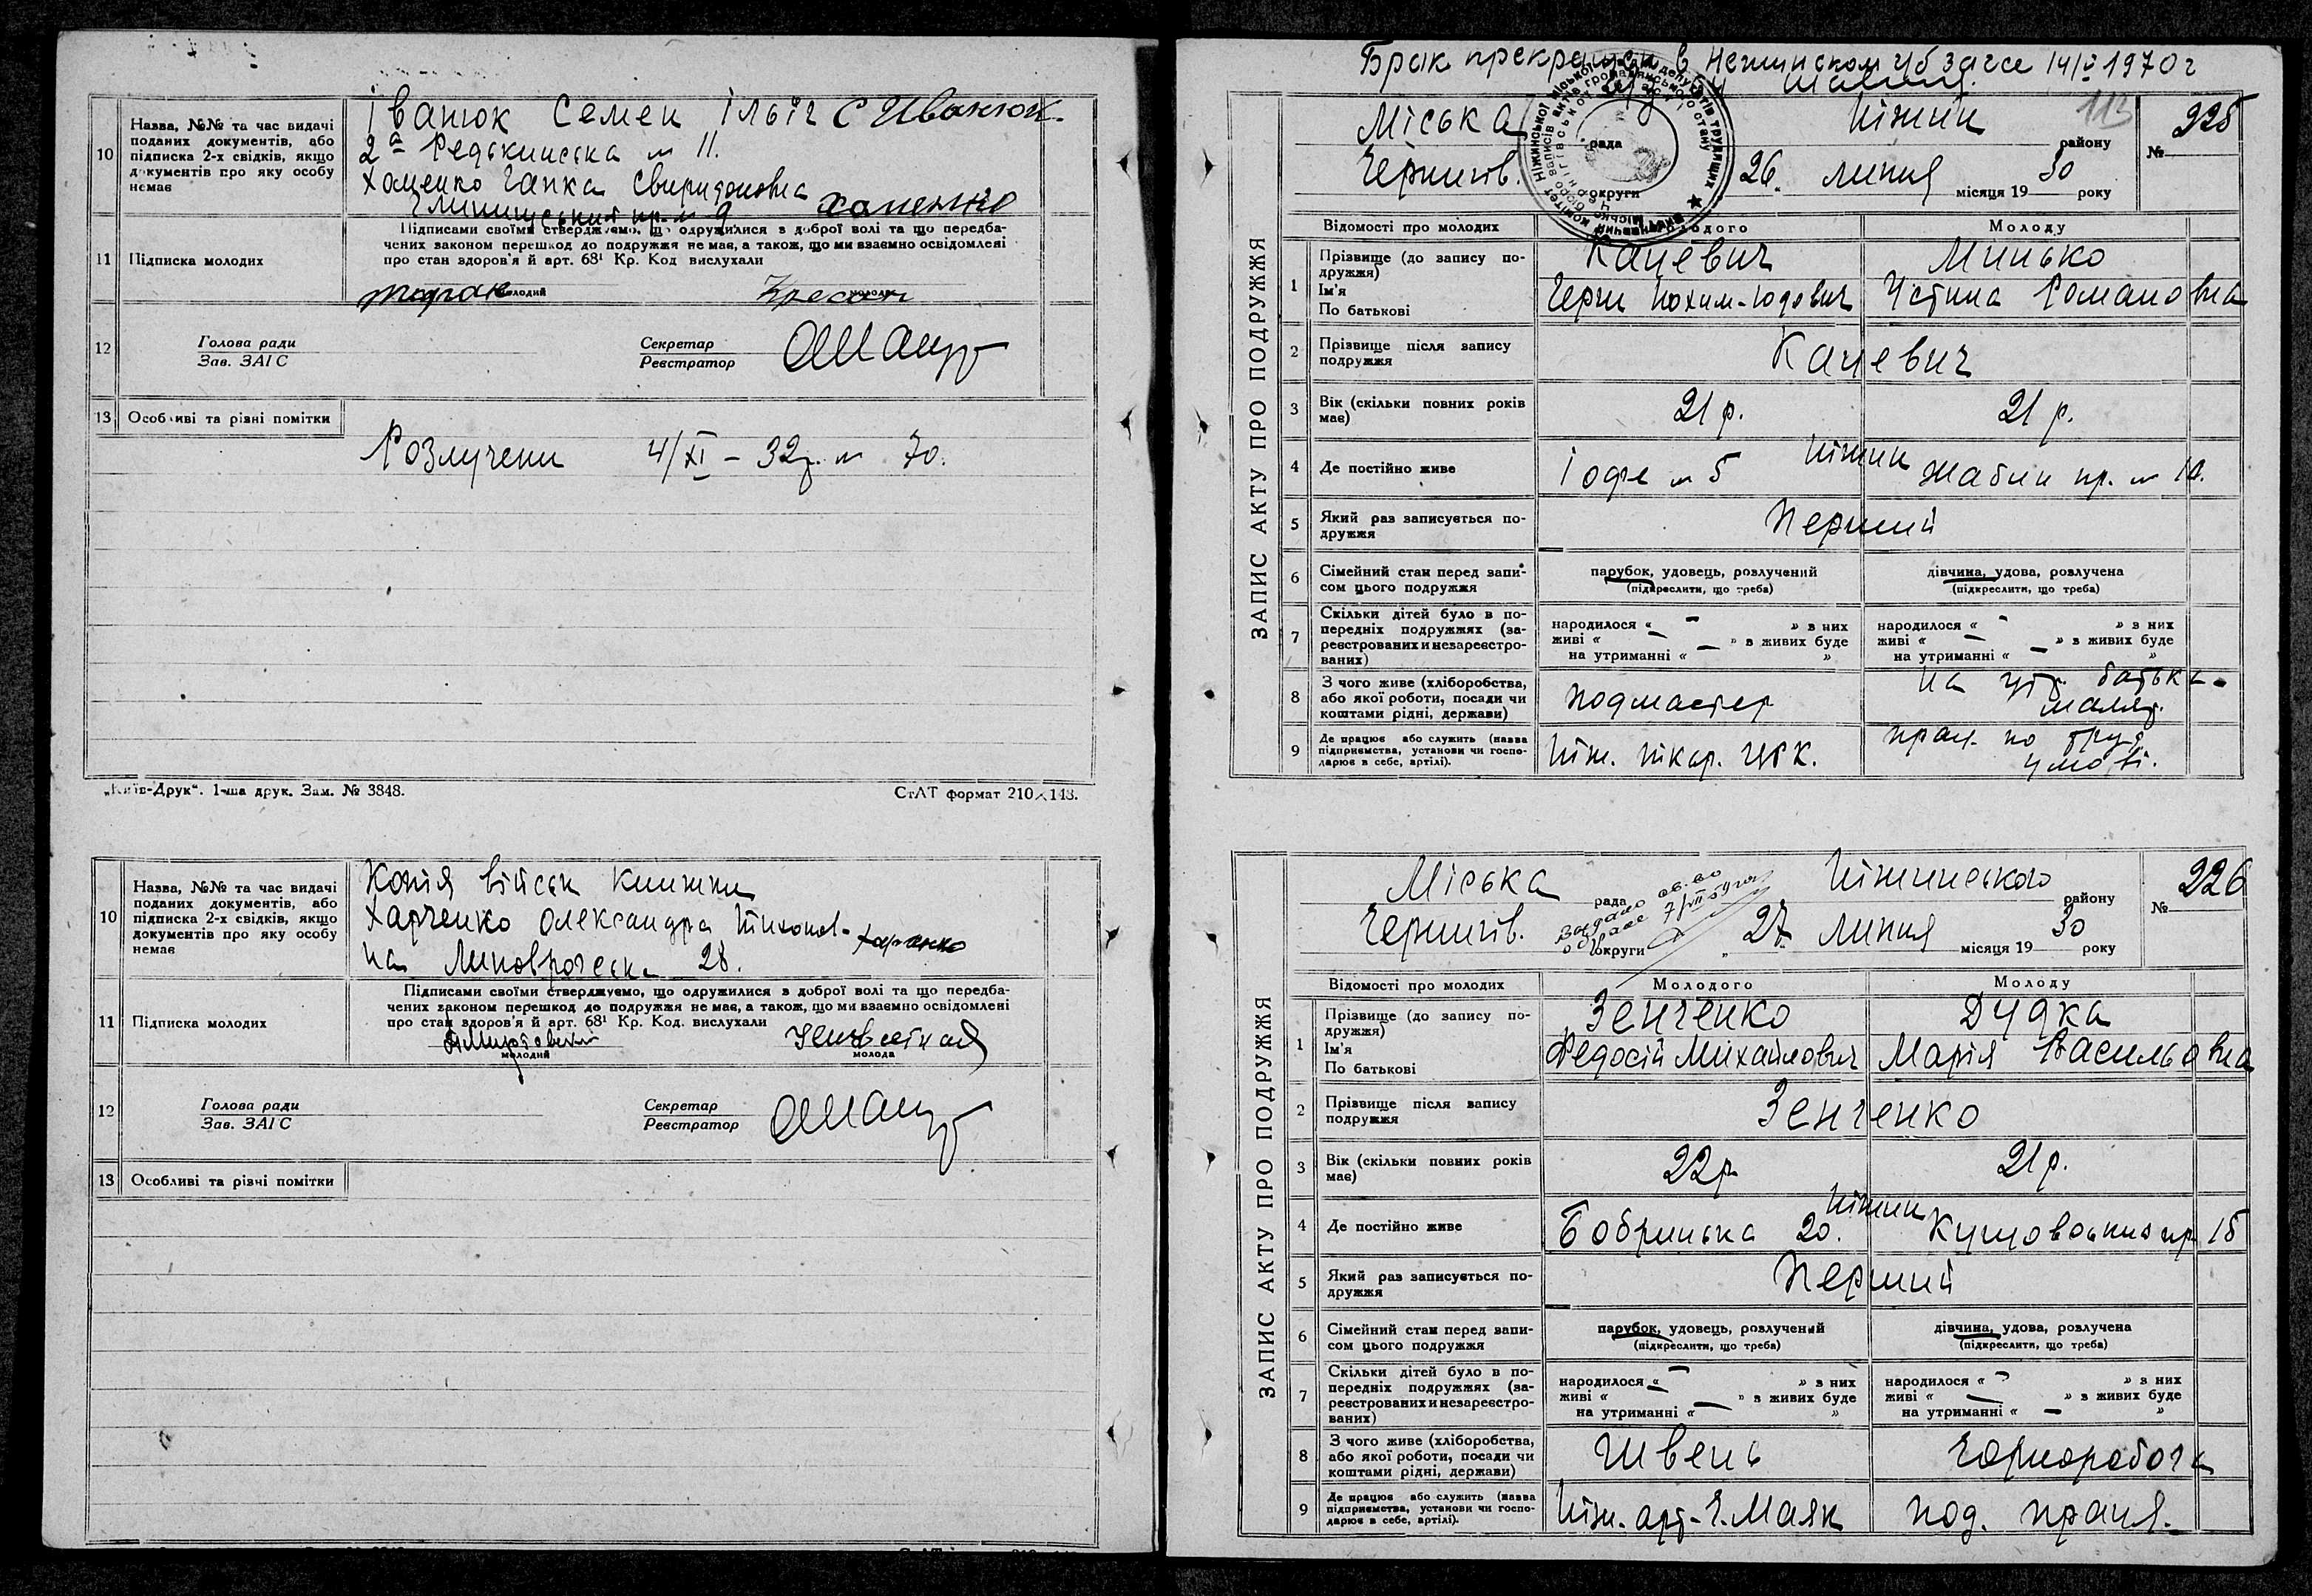 10
Назва, №№ та час видачі
поданих документів, або
підписка 2-х свідків, якщо
документів про яку особу
немає
Іванюк Семен Ільїч С Иванюк.
2а Редькинська № 11.
Хоменко Гапка Свиридоновна Хоменко
пр. № 9
11
Підписка молодих
Підписами своїми стверджуємо, що одружилися з доброї волі та що передба-
чених законом перешкод до подружжя не має, а також, що ми взаємно освідомлені
про стан здоров'я й арт. 68¹ Кр. Код вислухали
молодий
молода
12
Голова ради
Зав. ЗАГС
Секретар
Реєстратор
13
Особливі та різні помітки
Розлучени 4/XI – 32р. № 70.
„Київ-Друк“. 1-ша друк. Зам. № 3848.
СтАТ формат 210×148.
10
Назва, №№ та час видачі
поданих документів, або
підписка 2-х свідків, якщо
документів про яку особу
немає
Копія військ книжки
Харченко Олександра Тихонов. Харченко
28.
11
Підписка молодих
Підписами своїми стверджуємо, що одружилися з доброї волі та що передба-
чених законом перешкод до подружжя не має, а також, що ми взаємно освідомлені
про стан здоров'я й арт. 68¹ Кр. Код. вислухали
молодий
молода
12
Голова ради
Зав. ЗАГС
Секретар
Реєстратор
13
Особливі та різні помітки
Брак прекращен в Нежинском г/б загсе 14/V 1970 г
113
Міська рада Ніжин району № 225
Чернигів. округи 26 липня місяця 1930 року
ЗАПИС АКТУ ПРО ПОДРУЖЖЯ
Відомості про молодих
Молодого
Молоду
1
Прізвище (до запису по-
дружжя)
Ім'я
По батькові
Каневич
Герш Нохим-Юдович
Минько
Устина Романовна
2
Прізвище після запису
подружжя
Каневич
3
Вік (скільки повних років
має)
21 р.
21 р.
4
Де постійно живе
Ніжин
Іофе № 5
Жабин пр. № 10.
5
Який раз записується по-
дружжя
Перший
6
Сімейний стан перед запи-
сом цього подружжя
парубок, удовець, розлучений
(підкреслити, що треба)
дівчина, удова, розлучена
(підкреслити, що треба)
7
Скільки дітей було в по-
передніх подружжях (за-
реєстрованих и незареєстро-
ваних)
народилося « – » з них
живі « – » з живих буде
на утриманні « – »
народилося « – » з них
живі « – » з живих буде
на утриманні « – »
8
З чого живе (хліборобства,
або якої роботи, посади чи
коштами рідні, держави)
подмастер
на утр. батька
маляр.
9
Де працює або служить (назва
підприємства, установи чи госпо-
дарює в себе, артілі).
Ніж. пікар. ЦРК.
прац. по труд.
умові.
Міська рада Ніжинського району № 226
Чернигів. округи 27 липня місяця 1930 року
Видано св-во
о браке 7/VII 59 года
ЗАПИС АКТУ ПРО ПОДРУЖЖЯ
Відомості про молодих
Молодого
Молоду
1
Прізвище (до запису по-
дружжя)
Ім'я
По батькові
Зенченко
Федосій Михайлович
Дудка
Марія Васильовна
2
Прізвище після запису
подружжя
Зенченко
3
Вік (скільки повних років
має)
22 р
21 р.
4
Де постійно живе
Ніжин
Бобринька 20.
пр 15
5
Який раз записується по-
дружжя
Перший
6
Сімейний стан перед запи-
сом цього подружжя
парубок, удовець, розлучений
(підкреслити, що треба)
дівчина, удова, розлучена
(підкреслити, що треба)
7
Скільки дітей було в по-
передніх подружжях (за-
реєстрованих и незареєстро-
ваних)
народилося « – » з них
живі « » з живих буде
на утриманні « – »
народилося « – » з них
живі « – » з живих буде
на утриманні « – »
8
З чого живе (хліборобства,
або якої роботи, посади чи
коштами рідні, держави)
Швець
Чорноробоча
9
Де працює або служить (назва
підприємства, установи чи госпо-
дарює в себе, артілі).
Ніж. арт. Ч. Маяк
под. праця.